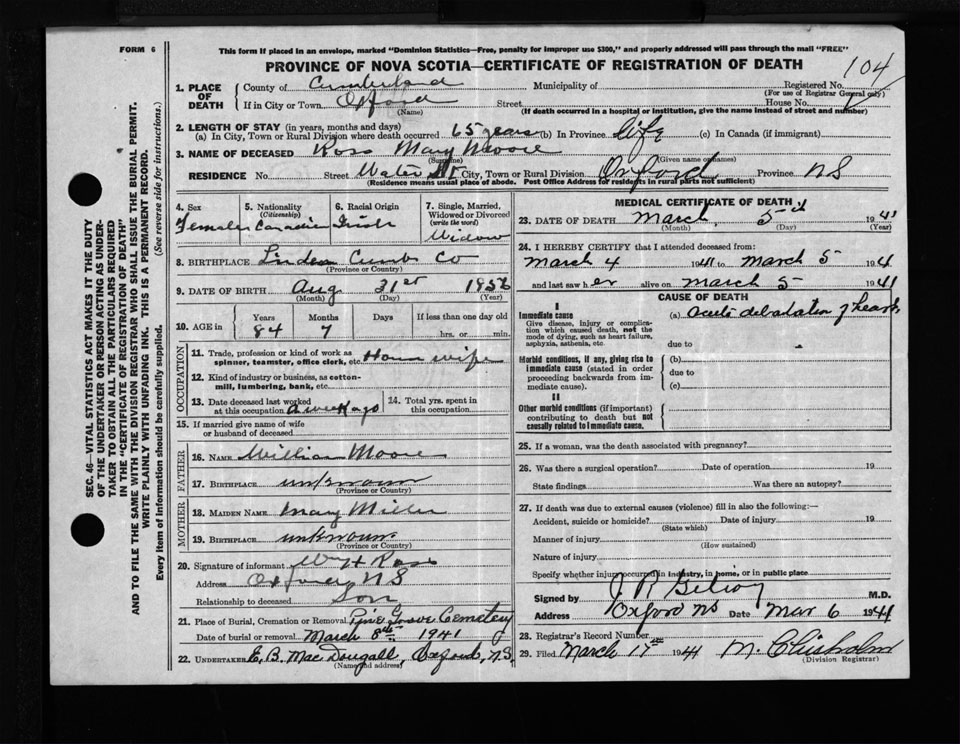 FORM 6
This form if placed in an envelope, marked "Dominion Statistics—Free, penalty for improper use $300," and properly addressed will pass through the mail "FREE"
PROVINCE OF NOVA SCOTIA—CERTIFICATE OF REGISTRATION OF DEATH
104
1. PLACE OF DEATH
County of Cumberland Municipality of Registered No.
(For use of Registrar General only)
If in City or Town Oxford Street House No.
(Name) (If death occurred in a hospital or institution, give the name instead of street and number)
2. LENGTH OF STAY (in years, months and days)
(a) In City, Town or Rural Division where death occurred 65 years (b) In Province life (c) In Canada (if immigrant)
3. NAME OF DECEASED Ross Mary Moore
(Surname) (Given name or names)
RESIDENCE No. Street Water St City, Town or Rural Division Oxford Province NS
(Residence means usual place of abode. Post Office Address for residents in rural parts not sufficient)
4. Sex Female
5. Nationality (Citizenship) Canadian
6. Racial Origin Irish
7. Single, Married, Widowed or Divorced (write the word) Widow
8. BIRTHPLACE Linden Cumb Co
(Province or Country)
9. DATE OF BIRTH Aug 31st 1856
(Month) (Day) (Year)
10. AGE in Years Months Days If less than one day old
84 7 hrs. or min.
OCCUPATION
11. Trade, profession or kind of work as spinner, teamster, office clerk, etc. House wife
12. Kind of industry or business, as cotton-mill, lumbering, bank, etc.
13. Date deceased last worked at this occupation a week ago
14. Total yrs. spent in this occupation
15. If married give name of wife or husband of deceased
FATHER
16. NAME William Moore
17. BIRTHPLACE unknown
(Province or Country)
MOTHER
18. MAIDEN NAME Mary Miller
19. BIRTHPLACE unknown
(Province or Country)
20. Signature of informant Ross
Address Oxford NS
Relationship to deceased Son
21. Place of Burial, Cremation or Removal Pine Grove Cemetery
Date of burial or removal March 8th 1941
22. UNDERTAKER E. B. MacDougall, Oxford, N.S.
(Name and address)
MEDICAL CERTIFICATE OF DEATH
23. DATE OF DEATH March 5th 1941
(Month) (Day) (Year)
24. I HEREBY CERTIFY that I attended deceased from:
March 4 1941 to March 5 194
and last saw her alive on March 5 1941
CAUSE OF DEATH
I
Immediate cause
Give disease, injury or complication which caused death, not the mode of dying, such as heart failure, asphyxia, asthenia, etc.
(a) Acute of heart
due to
Morbid conditions, if any, giving rise to immediate cause (stated in order proceeding backwards from immediate cause).
(b)
due to
(c)
II
Other morbid conditions (if important) contributing to death but not causally related to immediate cause.
25. If a woman, was the death associated with pregnancy?
26. Was there a surgical operation? Date of operation 19
State findings Was there an autopsy?
27. If death was due to external causes (violence) fill in also the following:—
Accident, suicide or homicide? Date of injury 19
(State which)
Manner of injury
(How sustained)
Nature of injury
Specify whether injury occurred in industry, in home, or in public place
Signed by M.D.
Address Oxford NS Date Mar 6 1941
28. Registrar's Record Number
29. Filed March 17th 1941 M. Chisholm
(Division Registrar)
SEC. 46—VITAL STATISTICS ACT MAKES IT THE DUTY
OF THE UNDERTAKER OR PERSON ACTING AS UNDERTAKER TO OBTAIN ALL THE PARTICULARS REQUIRED
IN THE "CERTIFICATE OF REGISTRATION OF DEATH"
AND TO FILE THE SAME WITH THE DIVISION REGISTRAR WHO SHALL ISSUE THE BURIAL PERMIT.
WRITE PLAINLY WITH UNFADING INK. THIS IS A PERMANENT RECORD.
Every item of information should be carefully supplied. (See reverse side for instructions.)